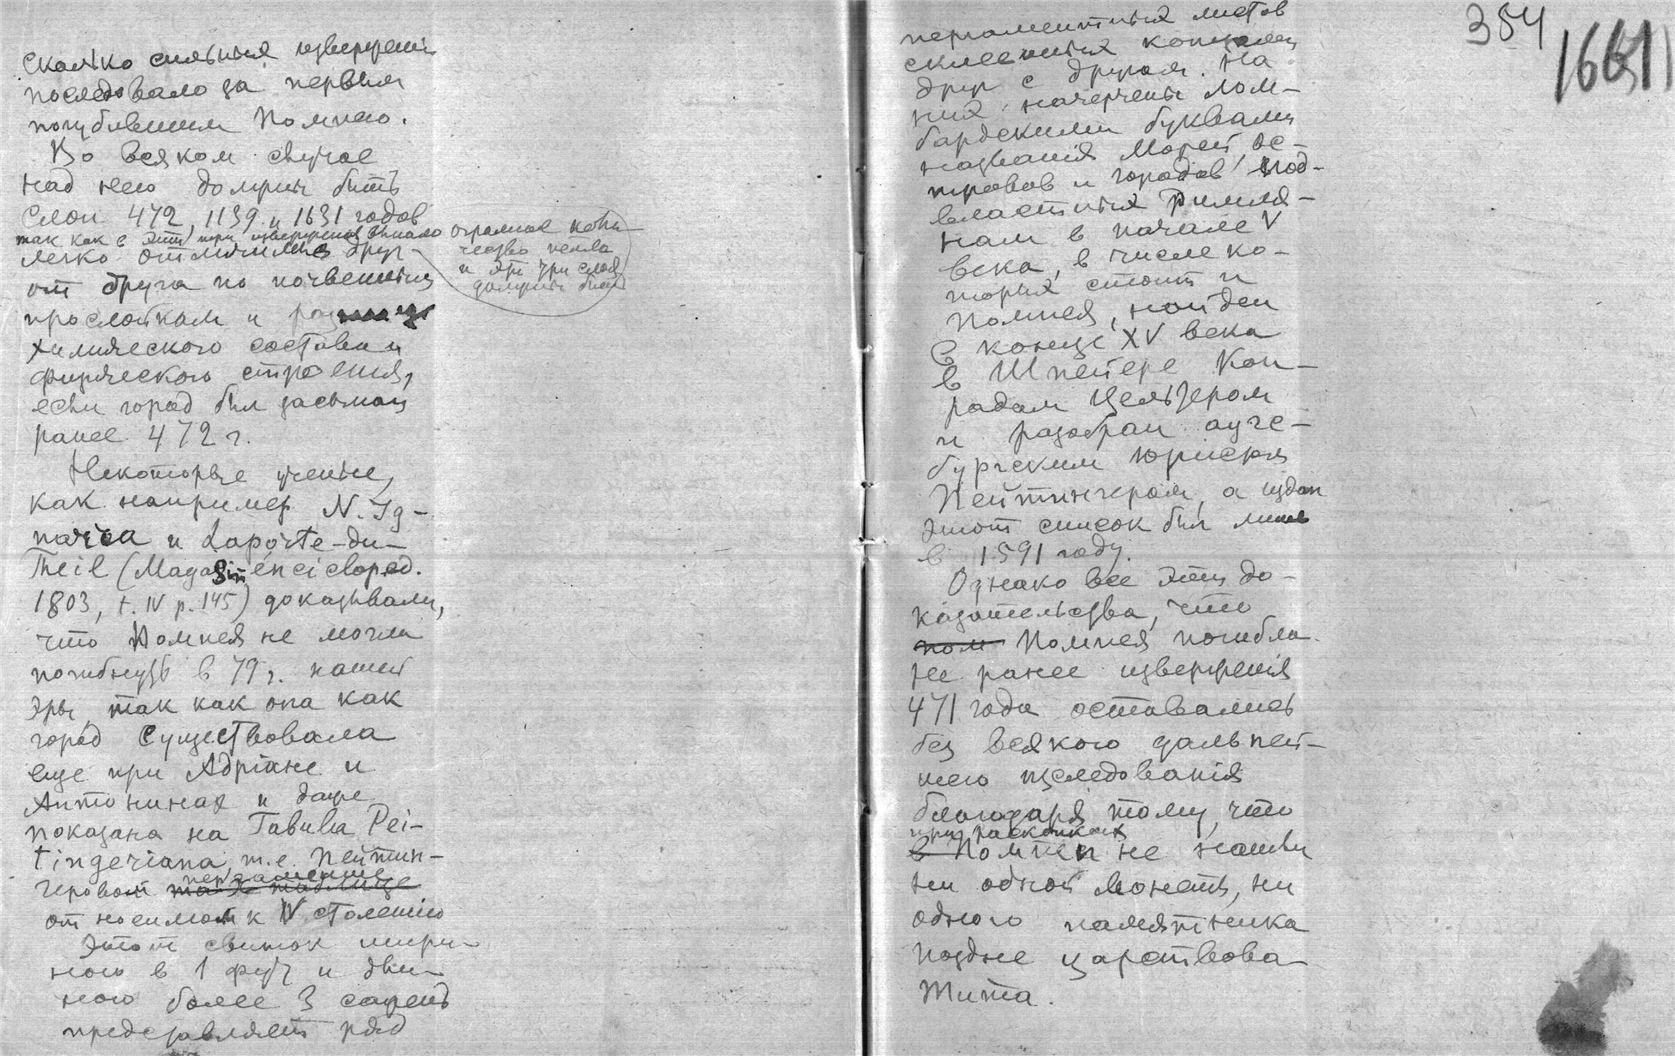 сколько сильных извержений
последовало за первым
погубившим Помпею.
Во всяком случае
над нею должны быть
слои 472, 1139 и 1631 годов
так как в эти при извержения выпало огромное коли
чество пепла
и эти три слоя
должны были
легко отличились друг
от друга по почвенным
прослойкам и
химического состава и
физического строения,
если город был засыпан
ранее 472 г.
Некоторые ученые,
как например N. Ig-
narra и Laporte-du-
Theil (Magasin encicloped.
1803, t. IV p. 145) доказывали,
что Помпея не могла
погибнуть в 79 г. нашей
эры так как она как
город существовала
еще при Адріане и
Антонинах и даже
показана на Tabula Pei-
tingeriana, т.е. Пейтин-
геровом пергаменте
относимом к IV столетію
Этот свиток шири-
ною в 1 фут и дли-
ною более 3 сажень
представляет ряд
354
16611
пергаментных листов
склеенных концами
друг с другом. На
них начерчены лом-
бардскими буквами
названія морей, ос-
тровов и городов под-
властных римля-
нам в начале V
века, в числе ко-
торых стоит и
Помпея, найден
в конце XV века
в Шпейере Кон-
радом Цельтером
и разобран аугс-
бургским юристом
Пейтингером, а издан
этот список был лишь
в 1591 году.
Однако все эти до-
казательства, что
пом Помпея погибла
не ранее изверженія
471 года оставались
без всякого дальней-
шего изследованія
благодаря тому, что
при раскопках
в Помпеи не нашли
ни одной монеты, ни
одного памятника
позднее царствова
Тита.